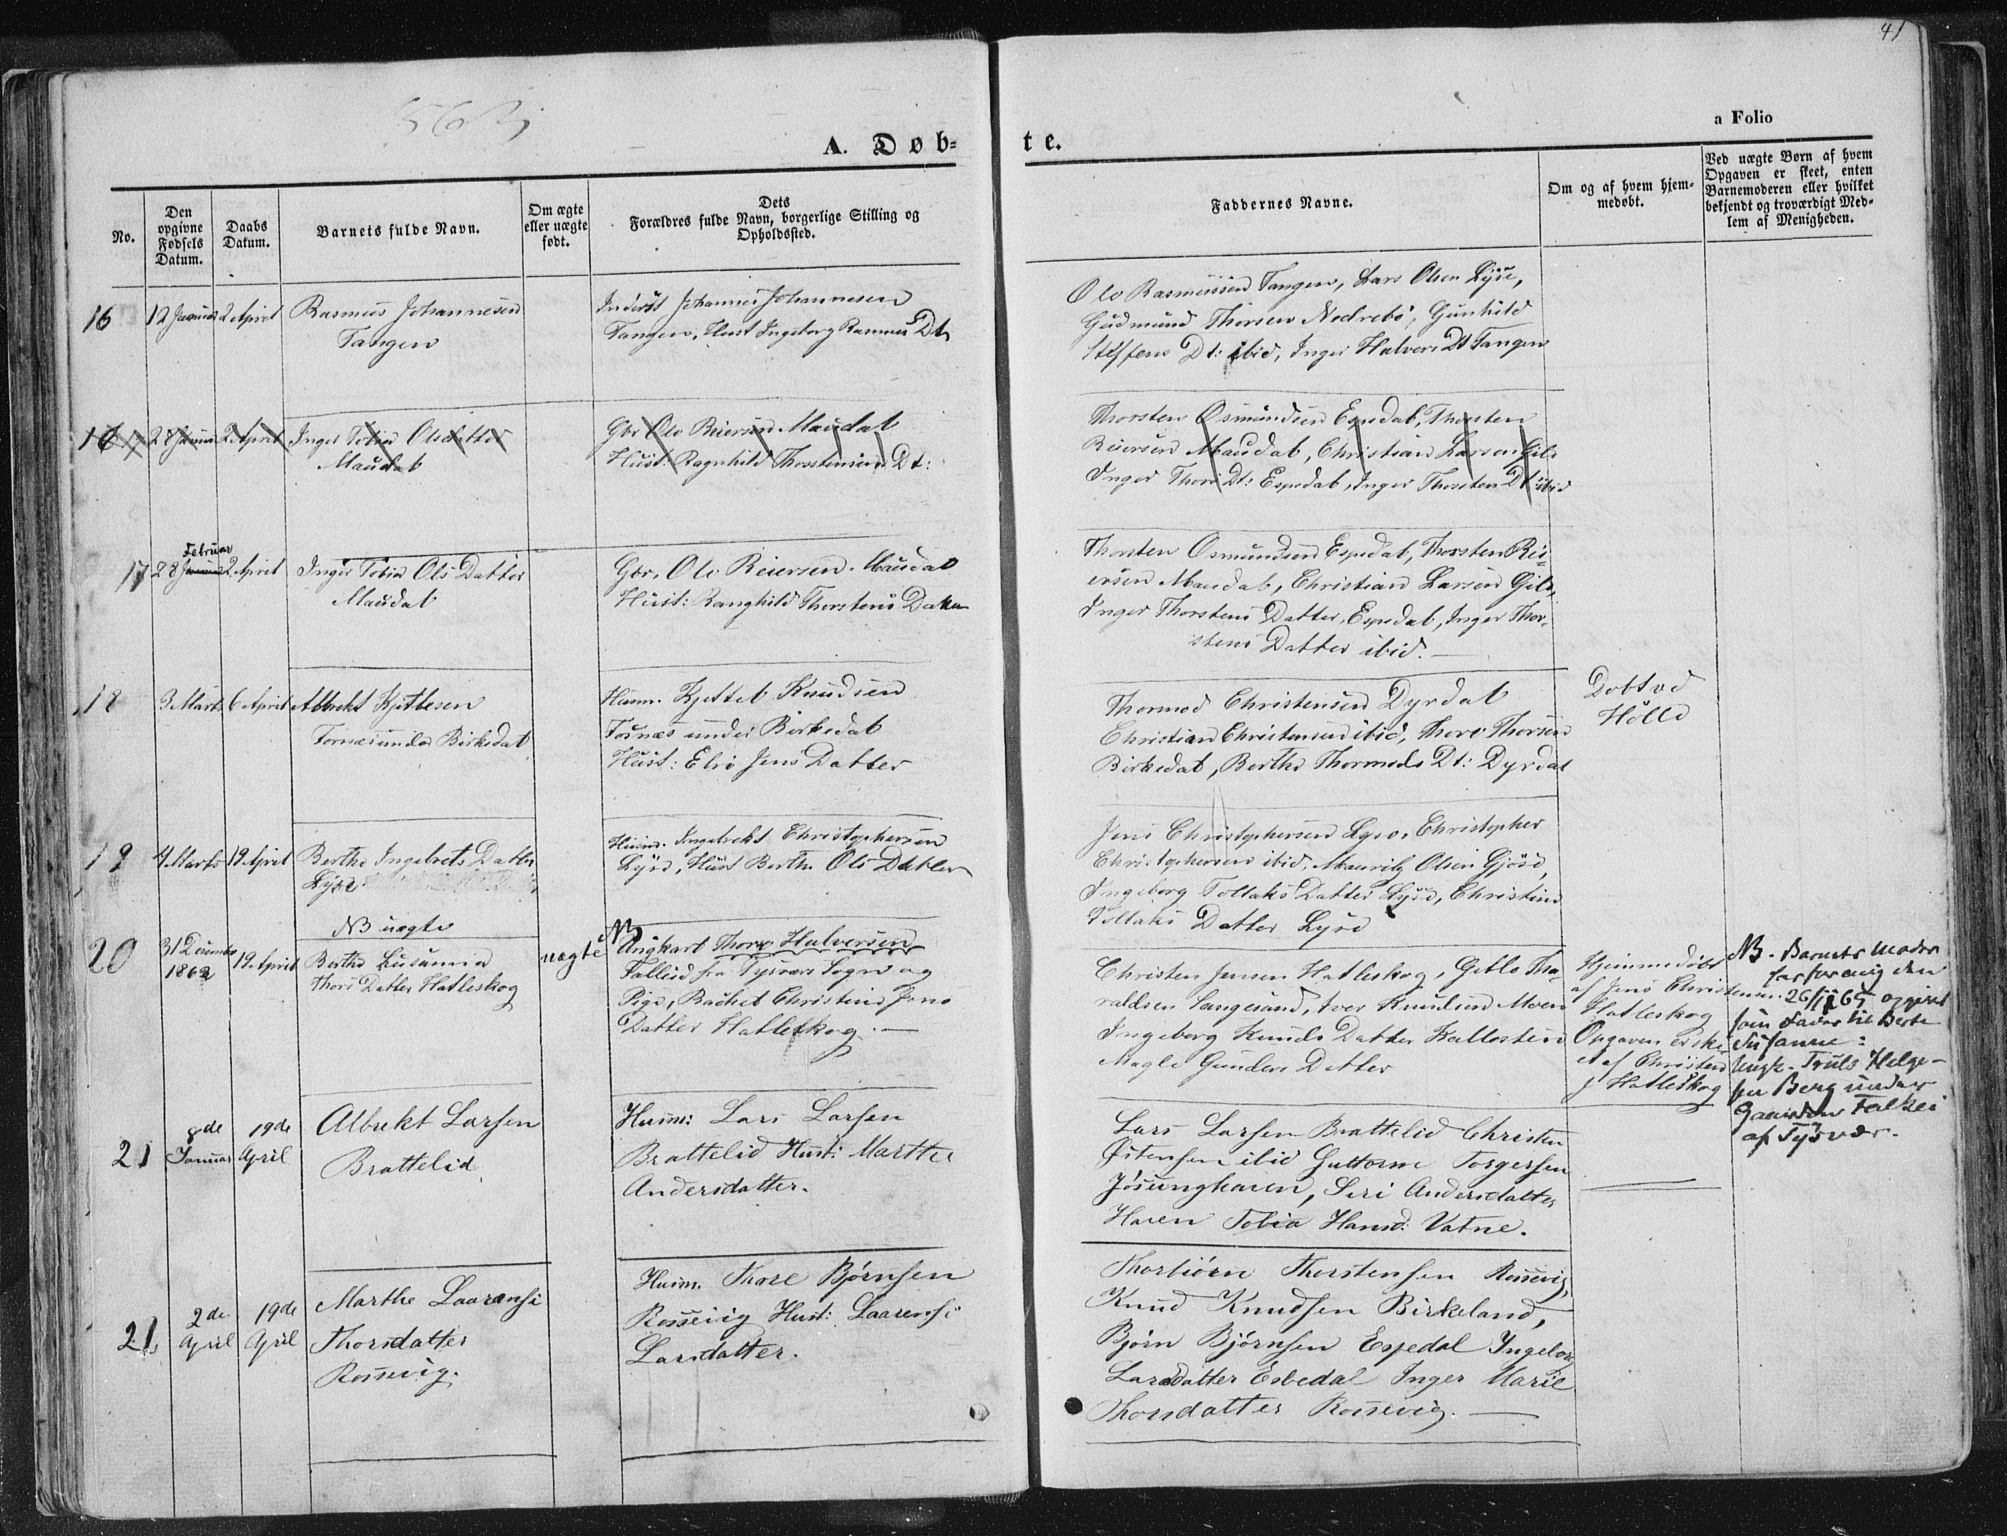 41
a Folio
A. Døb-
te.
No.
Den opgivne Fødsels Datum.
Daabs Datum.
Barnets fulde Navn.
Om ægte eller uægte født.
Dets Forældres fulde Navn, borgerlige Stilling og Opholdssted.
Faddernes Navne.
Om og af hvem hjemmedøbt.
Ved uægte Børn af hvem Opgaven er skeet, enten Barnemoderen eller hvilket bekjendt og troværdigt Medlem af Menigheden.
16
12 Januar
2 April
Rasmus Johannesen
Tangen
Inderst Johannes Johannesen
Tangen, Hust Ingeborg Rasmus Dt:
Ole Rasmussen Tangen, Lars Olsen Lyse,
Gudmund Thorsen Nedrebø, Gunhild
Steffens Dt: ibid, Inger Halvors Dt Tangen
16
28 Januar
2 April
Inger Tobia Olsdatter
Maudal
Gbr Ole Reiersen Maudal
Hust: Ragnhild Thorstensens Dt:
Thorsten Osmundsen Espedal, Thorsten
Reiersen Maudal, Christian Larsen Gilo
Inger Thors Dt: Espedal, Inger Thorsten Dt ibid
17
Februar
28 Januar
2 April
Inger Tobia Ols Datter
Maudal
Gbr. Ole Reiersen Maudal
Hust: Ranghild Thorstens Datter
Thorsten Osmundsen Espedal, Thorsten Rei-
ersen Maudal, Christian Larsen Gilo,
Inger Thorstens Datter Espedal, Inger Thor-
stens Datter ibid.
18
3 Marts
6 April
Albrekt Kjetlesen
Fornæs under Birkedal
Husm. Kjettel Knudsen
Fornæs under Birkedal
Hust: Elri Jens Datter
Thormod Christensen Dyrdal
Christian Christensen ibid, Thore Thorsen
Birkedal, Berthe Thormods Dt: Dyrdal
Døbt ved
Hølle
19
4 Marts
19 April
Berthe Ingebrets Datter
Lyse
Husm. Ingebrekt Christophersen
Lyse, Hust Berthe Ols Datter
Jens Christophersen Lyse, Christopher
Christophersen ibid, Mauritz Olsen Gjøse,
Ingeborg Tollaks Datter Lyse, Christine
Tollaks Datter Lyse
NB uægte
20
31 December
1862
19 April
Berthe Susanna
Thors Datter Hatleskog
uægte
NB
Ungkarl Thore Halvorsen
Fallied fra Tysvær Sogn og
Pige, Rachel Christine Jens
Datter Hatleskog.
Christen Jensen Hatleskog, Gitle Tha-
raldsen Langesand, Iver Knudsen Moen
Ingeborg Knuds Datter Kallesten
Magle Gunders Datter
Hjemmedøbt
af Jens Christensen
Hatleskog
Opgaven er ske-
et af Christen
J Hatleskog
NB. Barnets Moder
har for mig den
26/ 65 opgivet
som Fader til Berte
Susanne:
Ungk. Truls Helge-
sen Berg under
Gaarden Falkei
af Tysvær.
21
8de
Januar
19de
April
Albrekt Larsen
Brattelid
Husm: Lars Larsen
Brattelid Hust: Marthe
Andersdatter.
Lars Larsen Brattelid Christen
Østensen ibid Guttorm Torgersen
Jøsunghaven, Siri Andersdatter
Haven Tobia Hansd: Vatne.
21
2de
April
19de
April
Marthe Laarensi
Thorsdatter
Rossevig.
Husm. Thore Bjørnsen
Rossevig Hust: Laarensi
Larsdatter.
Thorbiørn Thorstensen Rossevig,
Knud Knudsen Birkeland,
Bjørn Bjørnsen Espedal Ingebor
Larsdatter Esbedal Inger Marie
Thorsdatter Rossevig.